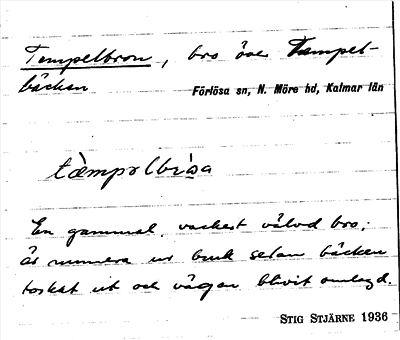 Tempelbron, bro över Tempel-
bäcken
Förlösa sn, N. Möre hd, Kalmar län
En gammal, vackert välvd bro;
är numera ur bruk sedan bäcken
torkat ut och vägen blivit omlagd.
STIG STJÄRNE 1936